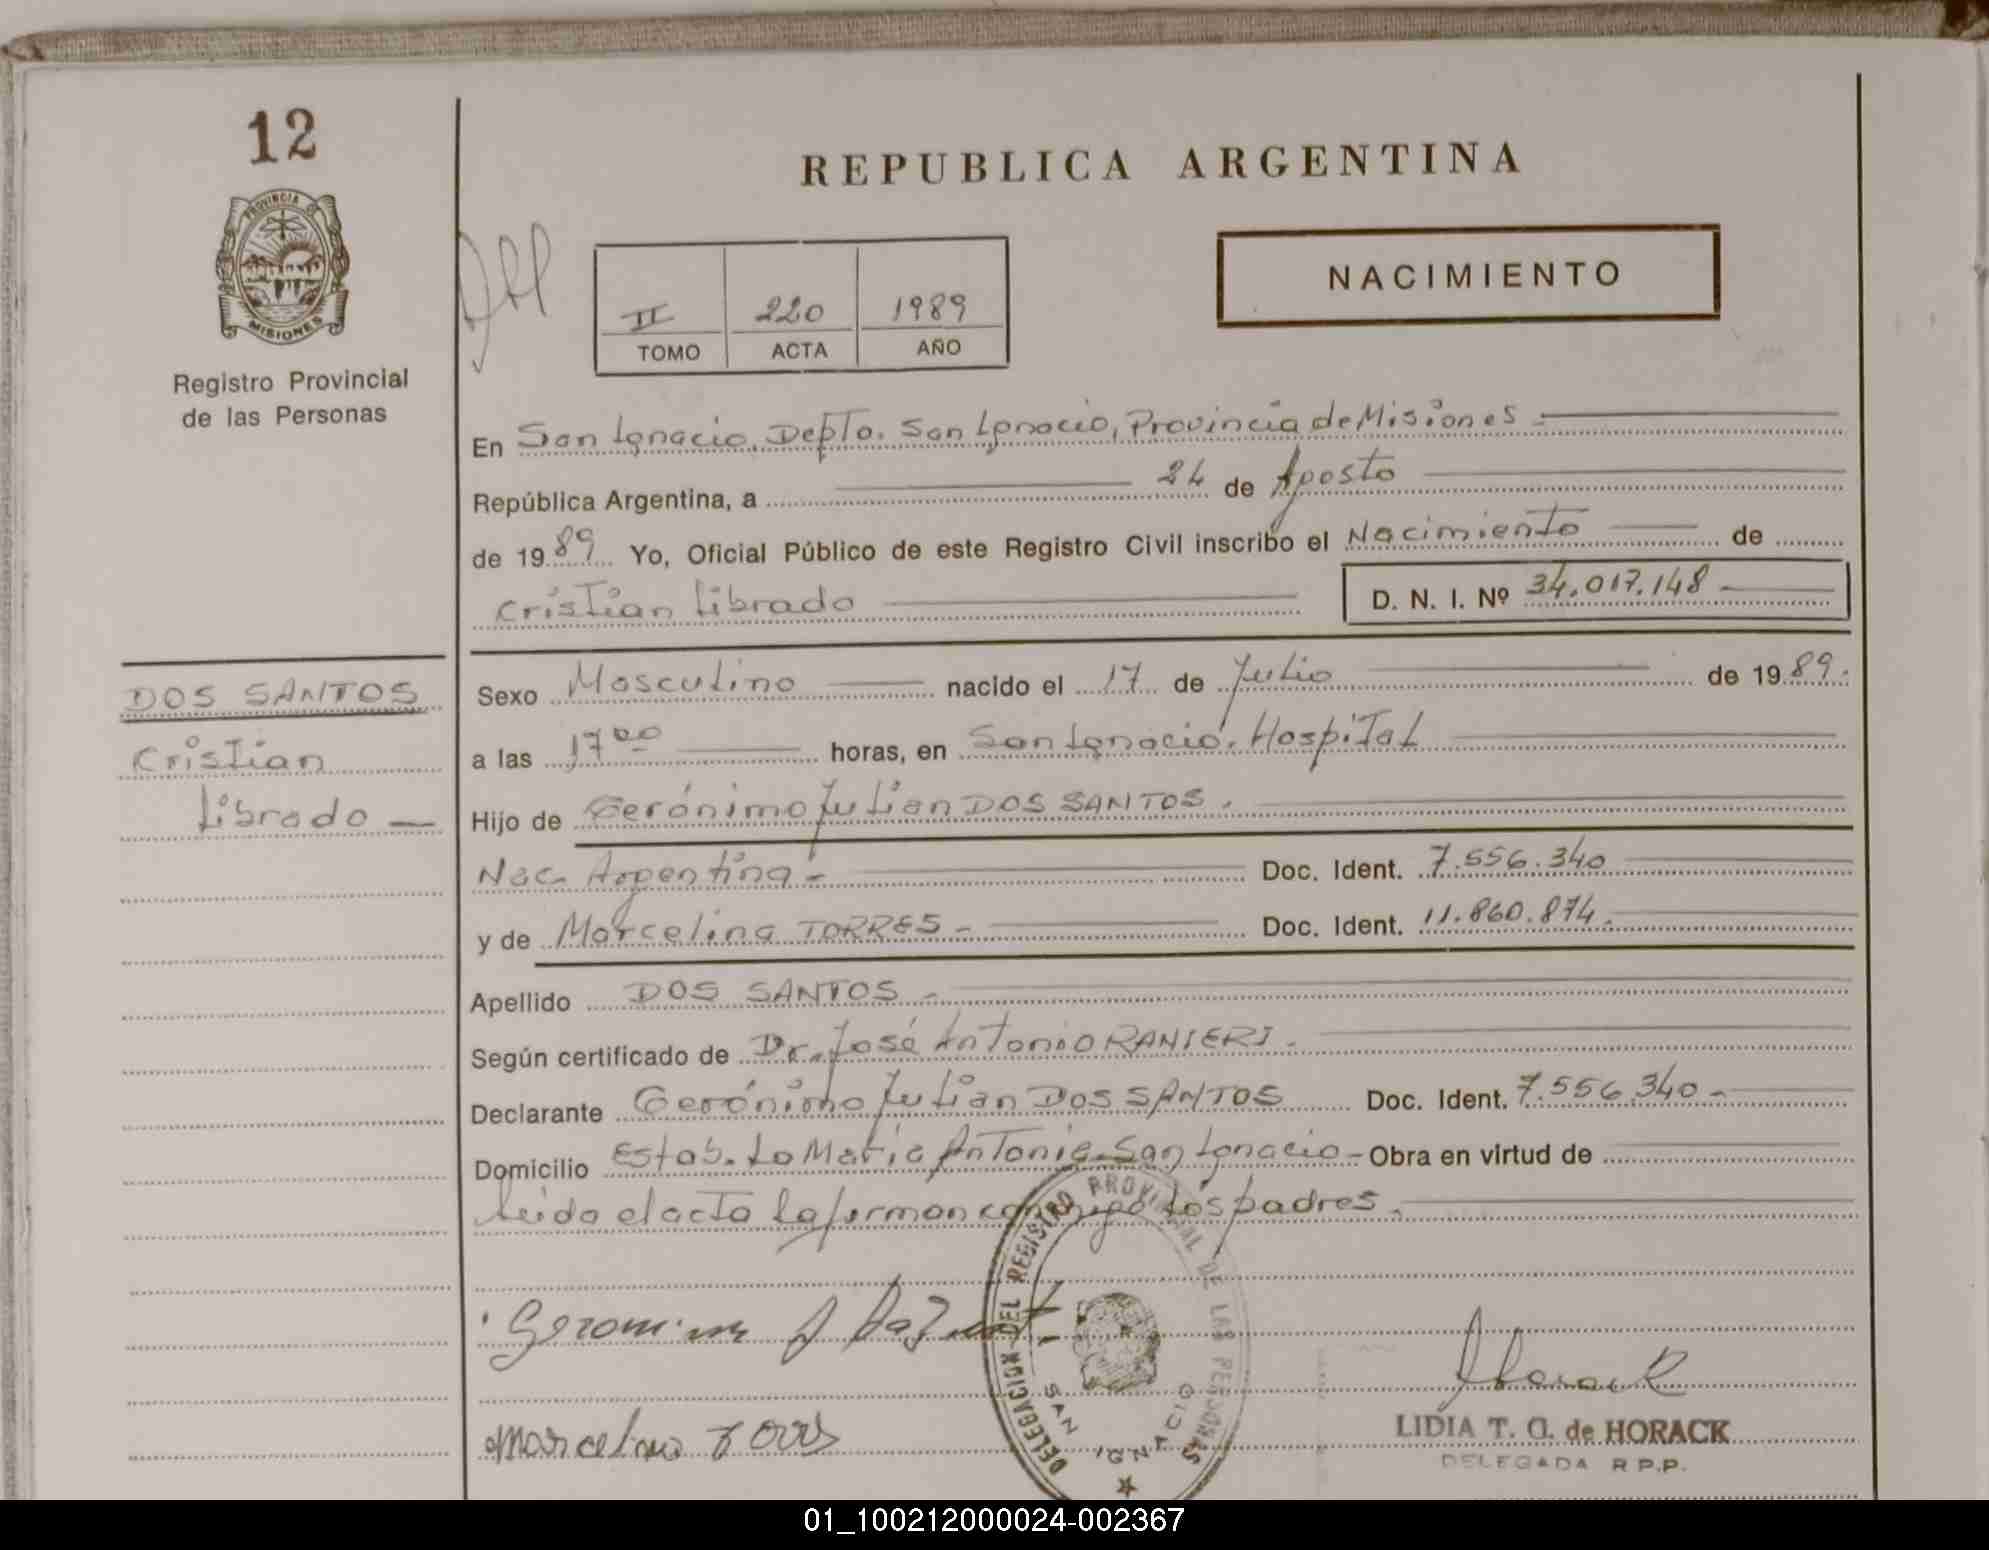 12
PROVINCIA DE
MISIONES
Registro Provincial
de las Personas
REPUBLICA ARGENTINA
NACIMIENTO
II 220 1989
TOMO ACTA AÑO
En San Ignacio, Depto. San Ignacio, Provincia de Misiones
República Argentina, a 24 de Agosto
de 1989 Yo, Oficial Público de este Registro Civil inscribo el Nacimiento de
Cristian Librado D. N. I. Nº 34.017.148
DOS SANTOS
Cristian
Librado
Sexo Masculino nacido el 17 de Julio de 1989.
a las 17 00 horas, en San Ignacio. Hospital
Hijo de Gerónimo Julian DOS SANTOS.
Nac. Argentina - Doc. Ident. 7.556.340
y de Marcelina TORRES - Doc. Ident. 11.860.874.
Apellido DOS SANTOS -
Según certificado de Dr. José Antonio RANIERI.
Declarante Gerónimo Julian DOS SANTOS Doc. Ident. 7.556.340 -
Domicilio Estab. La Maria Antonia - San Ignacio - Obra en virtud de
Leida el acta la firman conmigo los padres.
DELEGACION DEL REGISTRO PROVINCIAL DE LAS PERSONAS
SAN IGNACIO
Horack
LIDIA T. G. de HORACK
DELEGADA R.P.P.
01_100212000024-002367